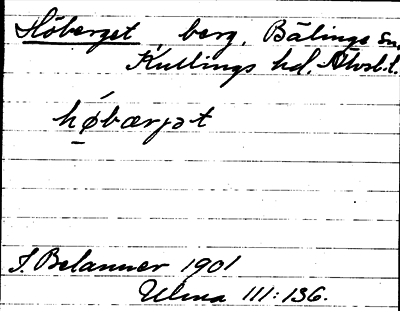 Höberget, berg, Bälings sn,
Kullings hd. Älvsb.l.
høbærjət
J. Belanner 1901
Ulma 111:136.